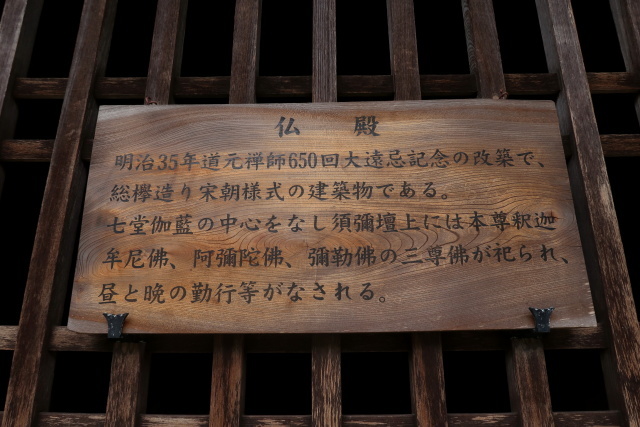 仏殿
明治35年道元禅師650回大遠忌記念の改築で、
総欅造り宋朝様式の建築物である。
七堂伽藍の中心をなし須彌壇上には本尊釈迦
牟尼佛、阿彌陀佛、彌勒佛の三尊佛が祀られ、
昼と晩の勤行等がなされる。